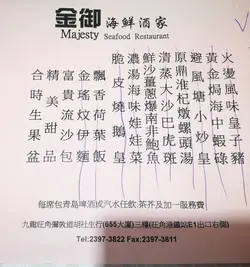 金御海鮮酒家
Majesty Seafood Restaurant
火漫風味皇子豬
黃金焗海中蝦碌
避風塘小炒皇
原鼎淮杞燉螺頭湯
清蒸大沙巴虎斑
鮮沙薑蔥爆南非鮑魚
濃湯海味娃娃菜
脆皮燒鵝皇
飄香荷葉飯
金瑤炆伊麵
富貴流沙包
精美甜品
合時生果盆
每席包青島啤酒或汽水任飲/茶芥及加一服務費
九龍旺角彌敦道胡社生行(655大廈)三樓(旺角港鐵站E1出口右側)
Tel:2397-3822 Fax:2397-3811